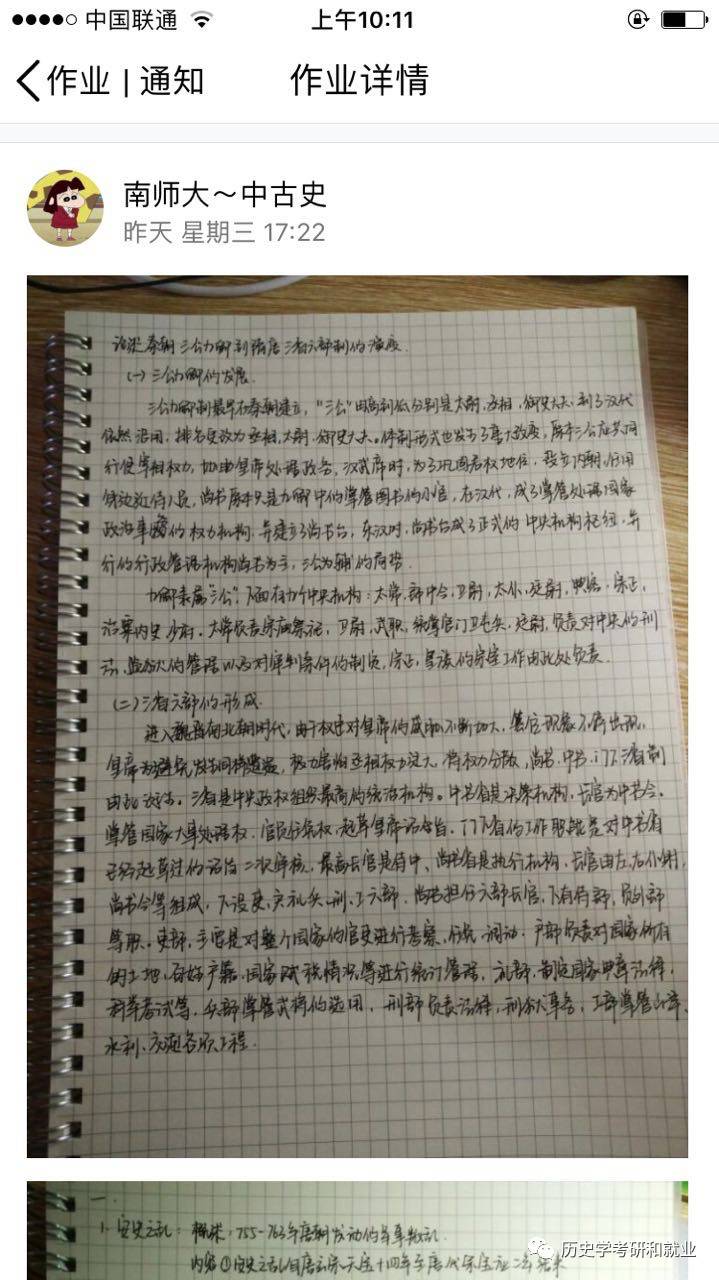 中国联通
上午10:11
作业 | 通知
作业详情
南师大～中古史
昨天 星期三 17:22
论述秦朝三公九卿到隋唐三省六部制的演变.
(一) 三公九卿的发展.
三公九卿制最早在秦朝建立, "三公"由高到低分别是太尉, 丞相, 御史大夫. 到了汉代
依然沿用, 排名更改为丞相, 太尉, 御史大夫。体制形式也发生了重大改变, 原本三公应共同
行使宰相权力, 协助皇帝处理政务, 汉武帝时, 为了巩固君权地位, 设立内朝, 任用
身边近侍人员, 尚书原本只是九卿中的掌管图书的小官, 在汉代, 成了掌管处理国家
政治事务的权力机构, 并建立了尚书台, 东汉时, 尚书台成了正式的中央机构
行的行政管理机构尚书为主, 三公为辅的局势.
九卿隶属"三公"下面有九个中央机构: 太常, 郎中令, 卫尉, 太仆, 廷尉, 典客, 宗正,
治粟内史, 少府. 太常负责宗庙祭祀, 卫尉, 武职, 统率宫门卫屯兵, 廷尉, 负责对中央的刑
法, 监狱的管理以及对审判案件的制定, 宗正, 皇族的宗室工作由此处负责.
(二) 三省六部的形成.
进入魏晋南北朝时代, 由于权臣对皇帝的威胁不断加大, 篡位现象不断出现,
皇帝为避免发生同样遭遇, 极力害怕丞相权力过大, 将权力分散, 尚书, 中书, 门下三省制
由此诞生。三省是中央政权组织最高的统治机构。中书省是决策机构, 长官为中书令,
掌管国家大事处理权, 官员任免权, 起草皇帝诏令旨. 门下省的工作职能是对中书省
已经起草过的诏旨二次审核, 最高长官是侍中, 尚书省是执行机构, 长官由左, 右仆射,
尚书令等组成, 下设吏, 户, 礼, 兵, 刑, 工六部, 尚书担任六部长官, 下有侍郎, 员外郎
等职. 吏部, 主要是对整个国家的官吏进行考察, 任免, 调动. 户部负责对国家所有
的土地, 百姓户籍, 国家赋税情况等进行统计管理. 礼部, 制定国家典章法律,
科举考试等, 兵部掌管武将的选用, 刑部负责法律, 刑狱事务, 工部掌管
水利, 交通各项工程.
一.
1. 安史之乱: 概述: 755-763年唐朝发动的军事叛乱.
内容 ①安史之乱自唐玄宗天宝十四年至唐代宗宝应二年结束
历史学考研和就业